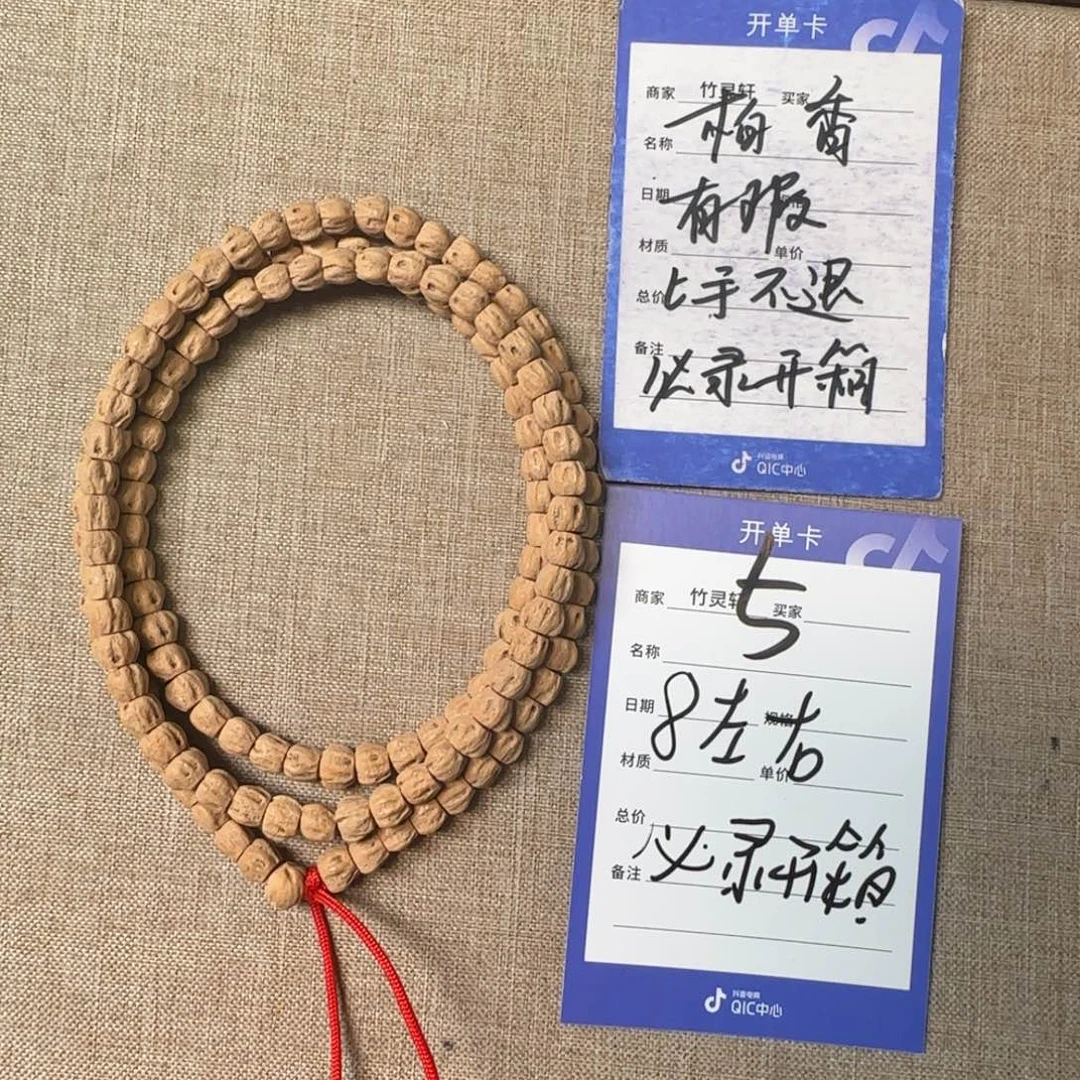 开单卡
商家 竹灵轩 买家
柏香
名称
日期
有瑕
材质 单价
总价
上手不退
备注
必录开箱
抖音电商
QIC中心
开单卡
商家 竹灵轩 买家
名称
日期 规格
8左右
材质 单价
总价
必录开箱
备注
抖音电商
QIC中心